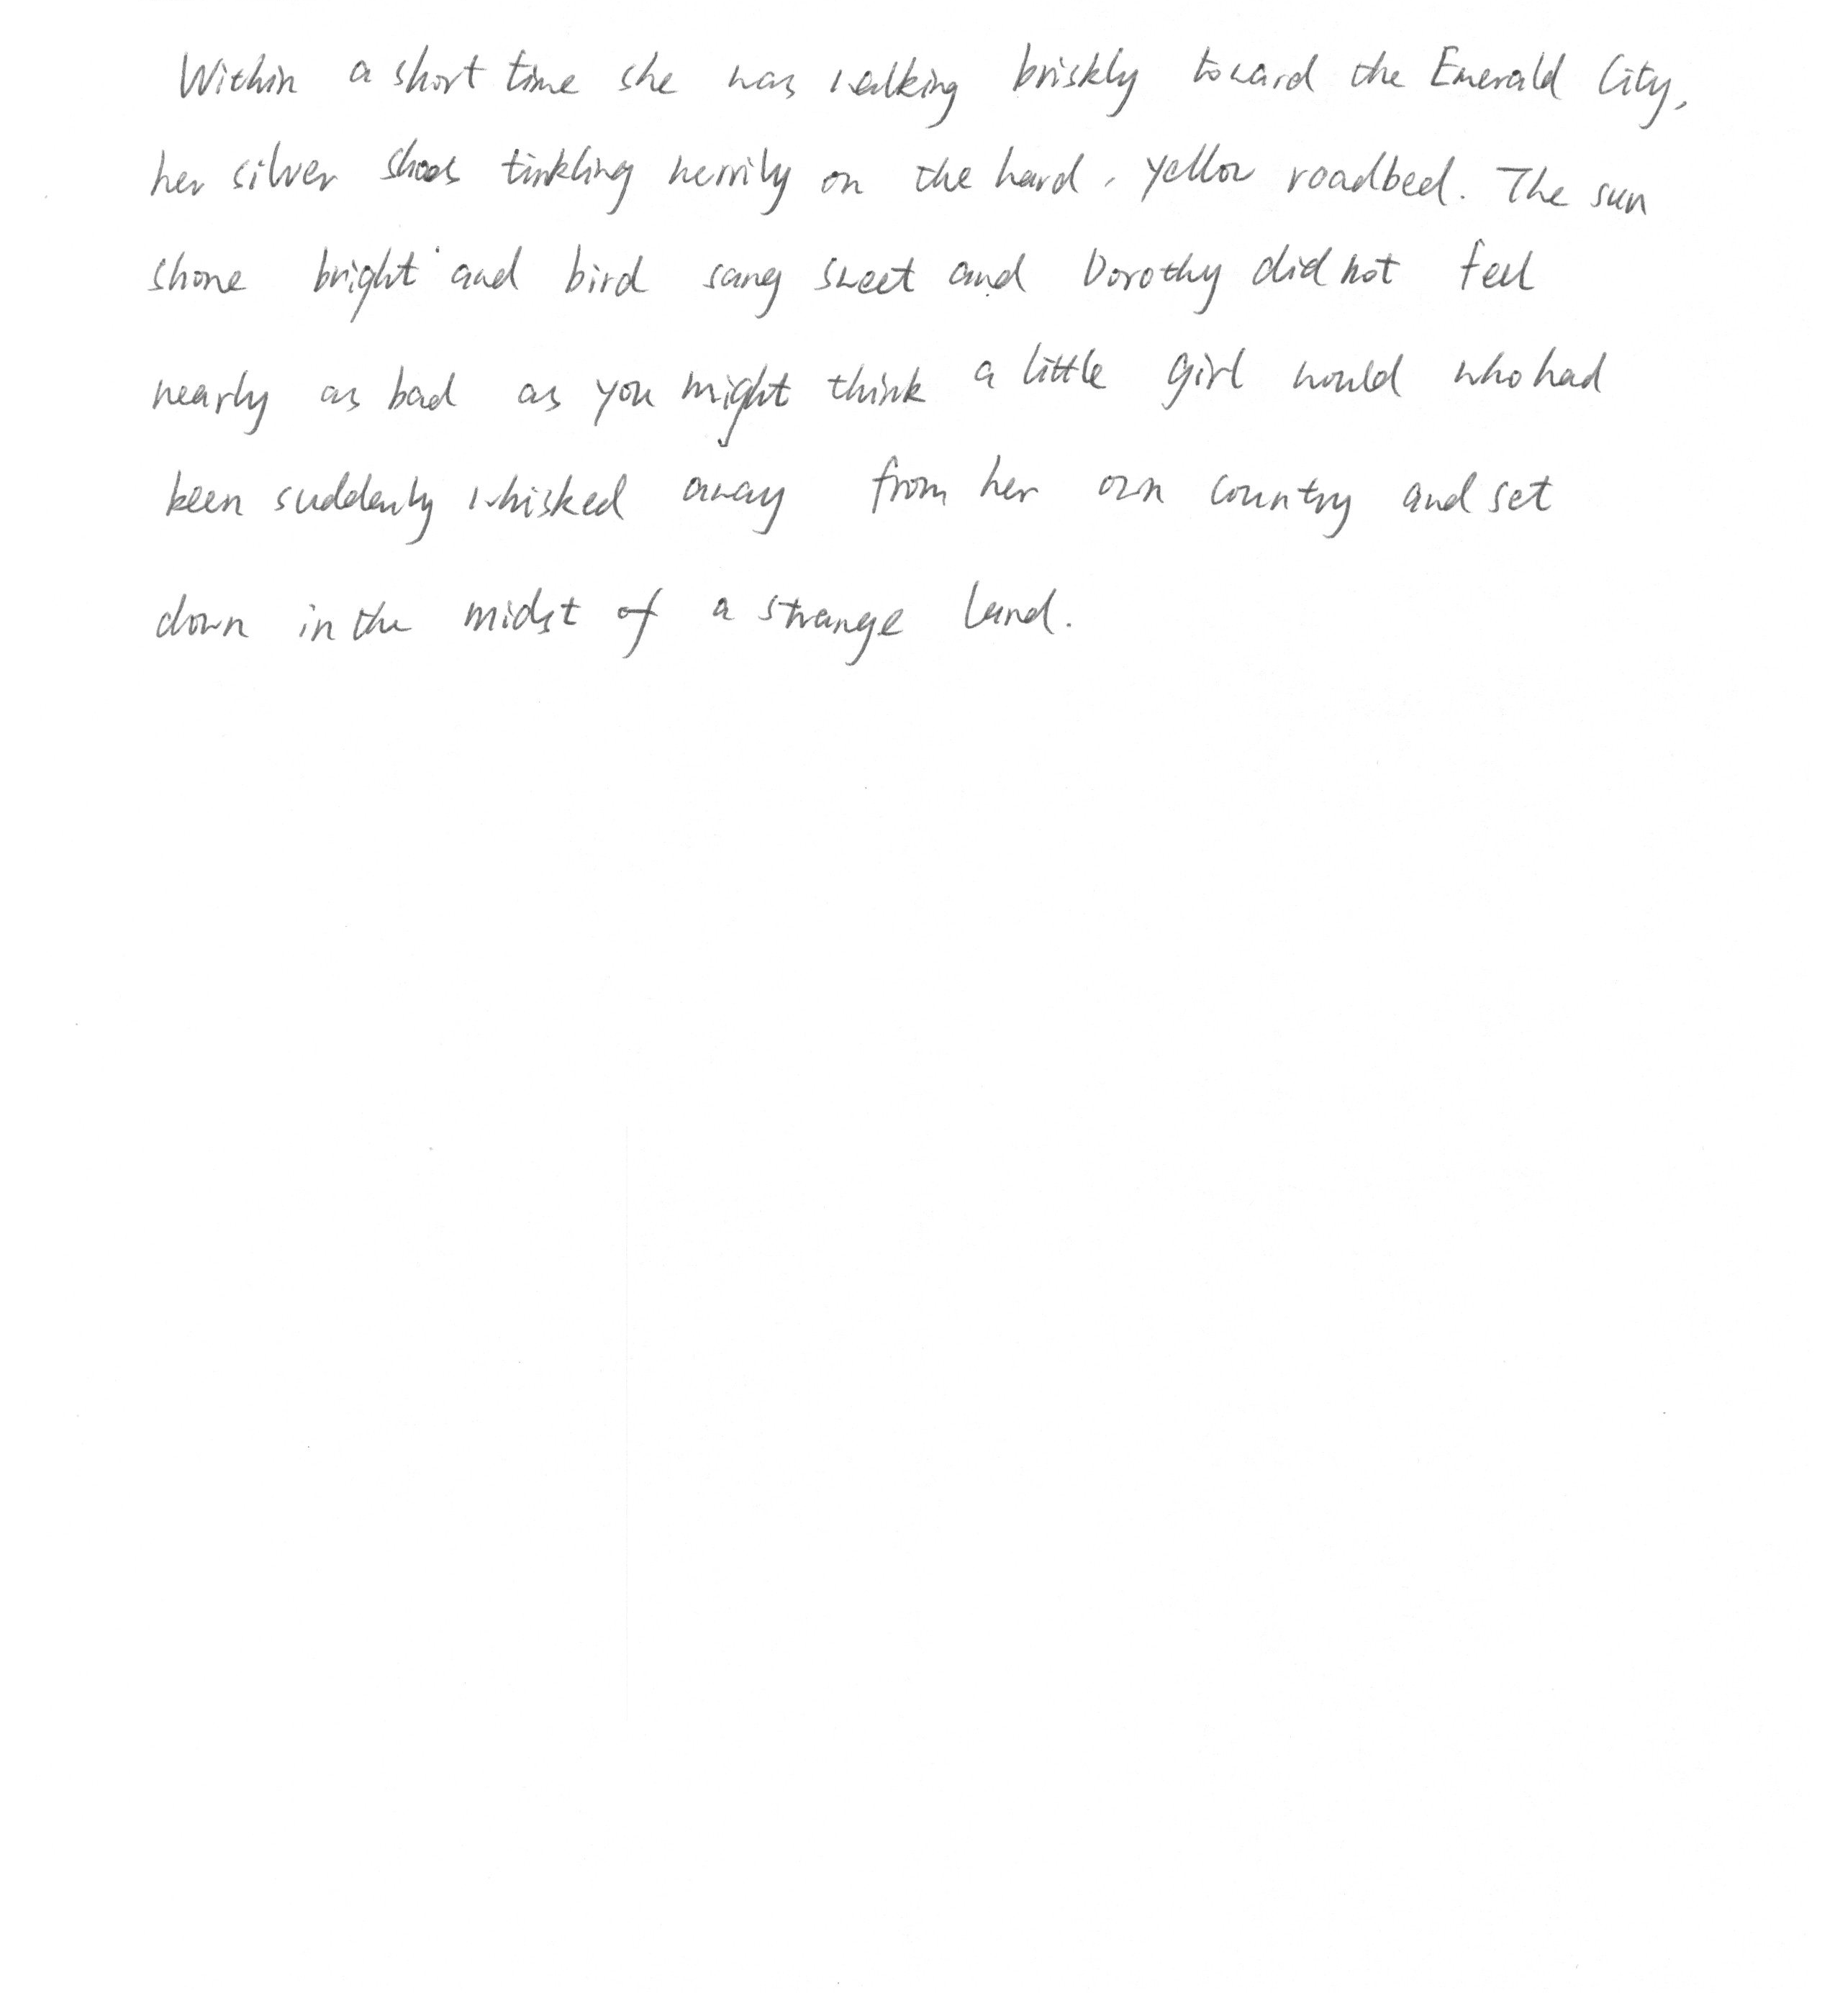 Within a short time she was walking briskly toward the Emerald City,
her silver shoes tinkling merrily on the hard, yellow roadbed. The sun
shone bright and bird sang sweet and Dorothy did not feel
nearly as bad as you might think a little girl would who had
been suddenly whisked away from her own country and set
down in the midst of a strange land.